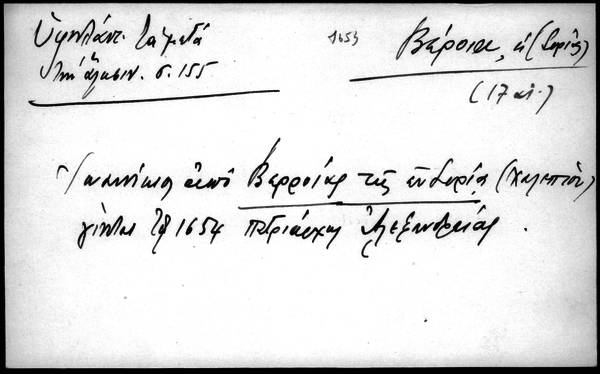 Ὑψηλάντ. Τὰ μετὰ
τὴν ἅλωσιν. σ. 155
1654
Βέροια, ἡ (Συρίας)
(17 αἰ.)
Ἰωαννίκιος ἀπὸ Βερροίας τῆς ἐν Συρίᾳ (Χαλεπίου)
γίνεται τῷ 1654 πατριάρχης Ἀλεξανδρείας.